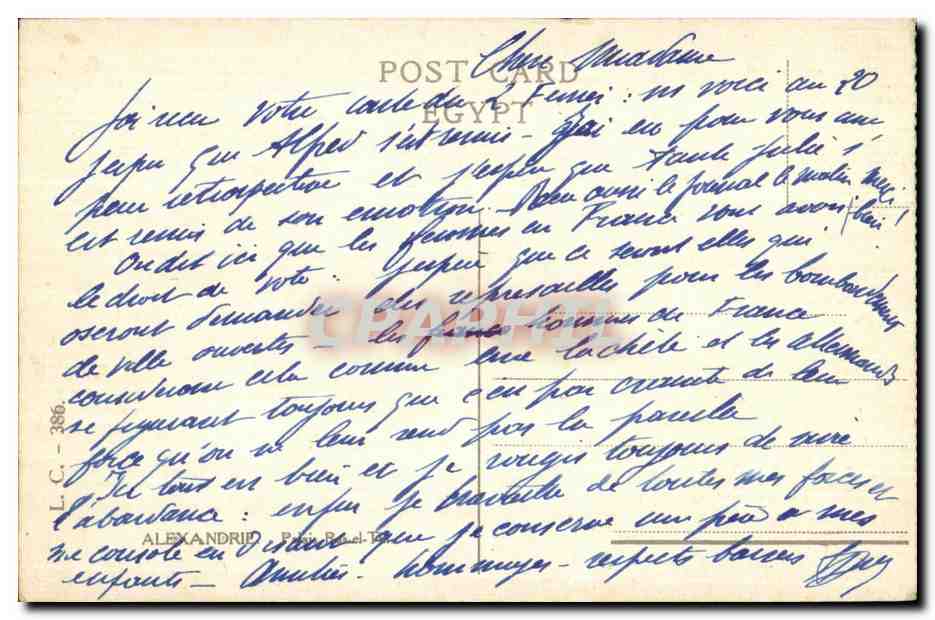 Chère Madame
POST CARD
EGYPT
J'ai reçu votre carte du 2 Février : ns voici au 20
j'espère que Alfred s'est remis - j'ai eu pour vous une
peur rétrospective et j'espère que Tante Julie s'
est remis de son émotion. Reçu aussi le journal le matin merci
On dit ici que les femmes en France vont avoir bien !
le droit de vote : j'espère que ce seront elles qui
oseront demander des représailles pour les bombardements
de ville ouvertes les hommes de France
considérant cela comme une lâcheté et les allemands
se figurant toujours que c'en par crainte de leur
force qu'on ne leur rend pas la pareille
Ici tout est bien et je rougis toujours de vivre
l'abondance : enfin je travaille de toutes mes forces et
me console en disant que je conserve un père à mes
enfants - Amitiés - hommages - respects baisers
L. C. - 386.
ALEXANDRIE. Palais Ras-el-Tin
CPAPHIL